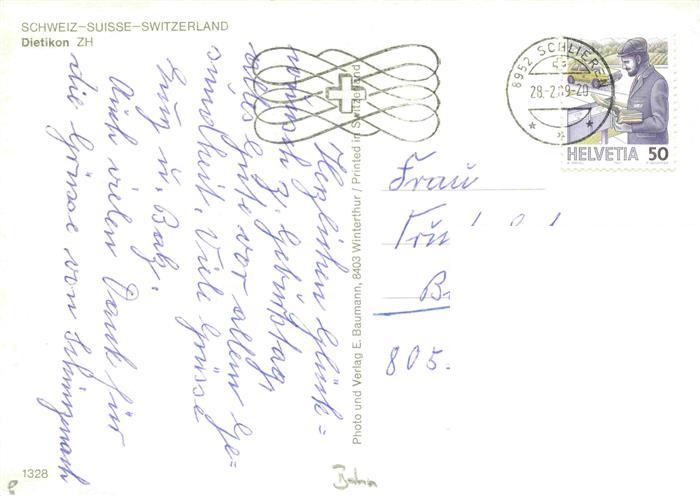 SCHWEIZ–SUISSE–SWITZERLAND
Dietikon ZH
Herzlichen Glück=
wunsch z. Geburtstag,
alles Gute vor allem Ge=
sundheit. Viele Grüsse
Euy u. Balz.
Auch vielen Dank für
die Grüsse von Schinznach
Photo und Verlag E. Baumann, 8403 Winterthur / Printed in Switzerland
8952 SCHLIEREN
HELVETIA 50
Frau
805.
1328